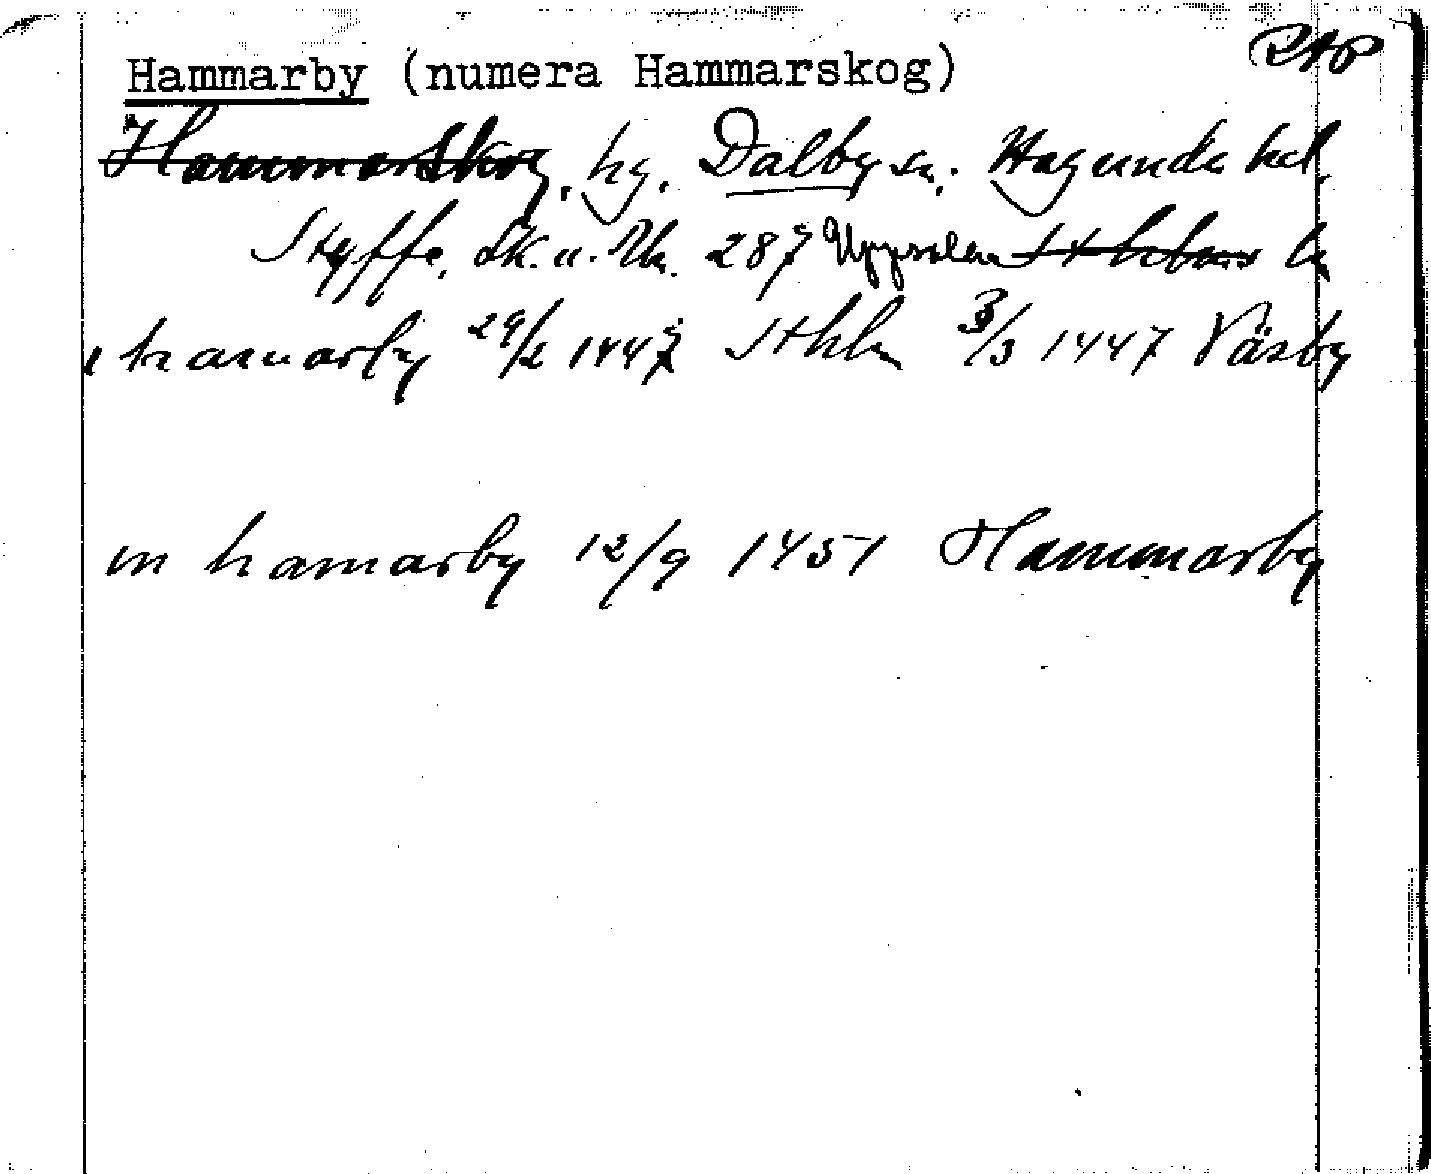 RAP
Hammarby (numera Hammarskog)
Hammarskog, hg, Dalby sn. Hagunda hd.
Styffe, Sk. u. Un. 287 Uppsala Sthlms ln
i hamarby 29/2 1447 Sthlm 3/3 1447 Väsby
in hamarby 12/9 1451 Hammarby